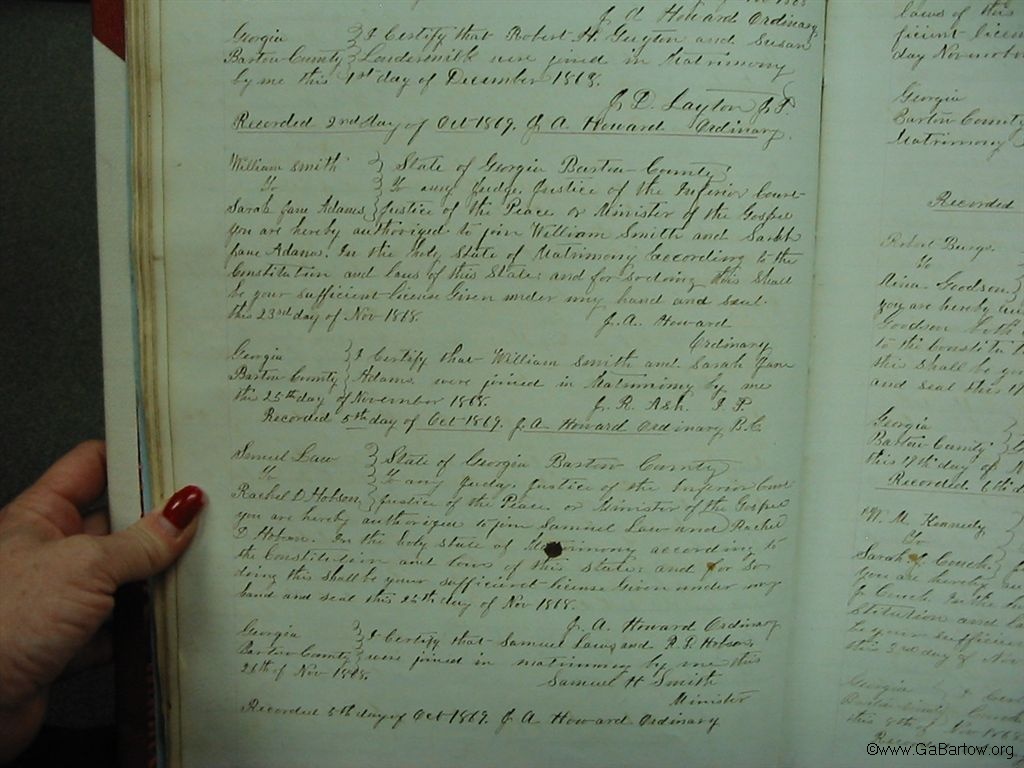 J. A. Howard Ordinary
Georgia } I Certify that Robert H. Guyton and Susan
Bartow County } were joined in Matrimony
by me this 1st day of December 1868.
J. D. Layton J. P.
Recorded 2nd day of Oct 1869. J. A. Howard Ordinary.
William Smith } State of Georgia Bartow County
To } To any Judge, Justice of the Inferior Court
Sarah Jane Adams } Justice of the Peace or Minister of the Gospel
you are hereby authorized to join William Smith and Sarah
Jane Adams. In the Holy State of Matrimony according to the
Constitution and laws of this State and for so doing this Shall
be your sufficient license Given under my hand and seal.
this 23rd day of Nov 1868.
J. A. Howard
Ordinary
Georgia } I Certify that William Smith and Sarah Jane
Bartow County } Adams were joined in Matrimony by me
this 25th day of November 1868.
J. R. Ash. J. P.
Recorded 5th day of Oct 1869. J. A. Howard Ordinary B.C.
Samuel Law } State of Georgia Bartow County
To } To any Judge, Justice of the Inferior Court
Rachel D Hobson } Justice of the Peace or Minister of the Gospel
you are hereby authorized to join Samuel Law and Rachel
D Hobson. In the holy state of Matrimony according to
the Constitution and laws of this state and for so
doing this shall be your sufficient license Given under my
hand and seal this 24th day of Nov 1868.
J. A. Howard Ordinary
Georgia } I Certify that Samuel Law and R. D. Hobson
Bartow County } were joined in matrimony by me this
Nov 1868.
Samuel H Smith
Minister
Recorded 5th day of Oct 1869. J. A Howard Ordinary
laws of this
ficient licen
day November
Georgia
Bartow County
Matrimony
Recorded
Robert Burge
To
Goodson
you are hereby au
Goodson
to the Constitu
this shall be yo
and seal this 19
Georgia
Bartow County
this 19th day of N
Recorded 6th d
W. M. Kennedy
To
Sarah J. Couch
you are hereby au
J Couch In the
stitution and la
be your sufficien
this 3rd day of Nov
Georgia } I Cert
Bartow County } Couch
this 8th of Nov 1868
©www.GaBartow.org